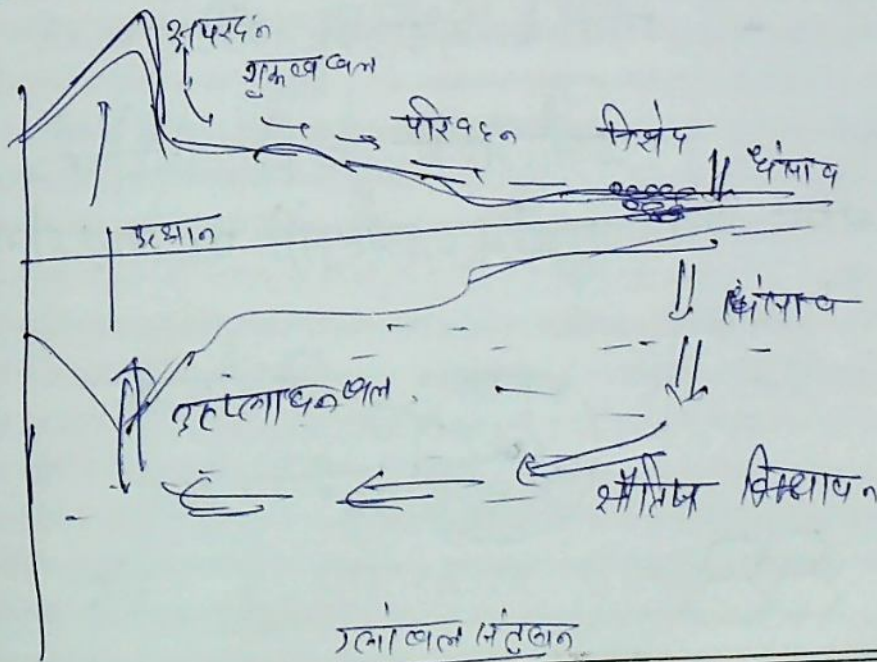 अपरदन
गुरूत्व बल
परिवहन
निक्षेप
धंसाव
उत्थान
धंसाव
उत्प्लावन बल
क्षैतिज विस्थापन
ग्लोबल संतुलन